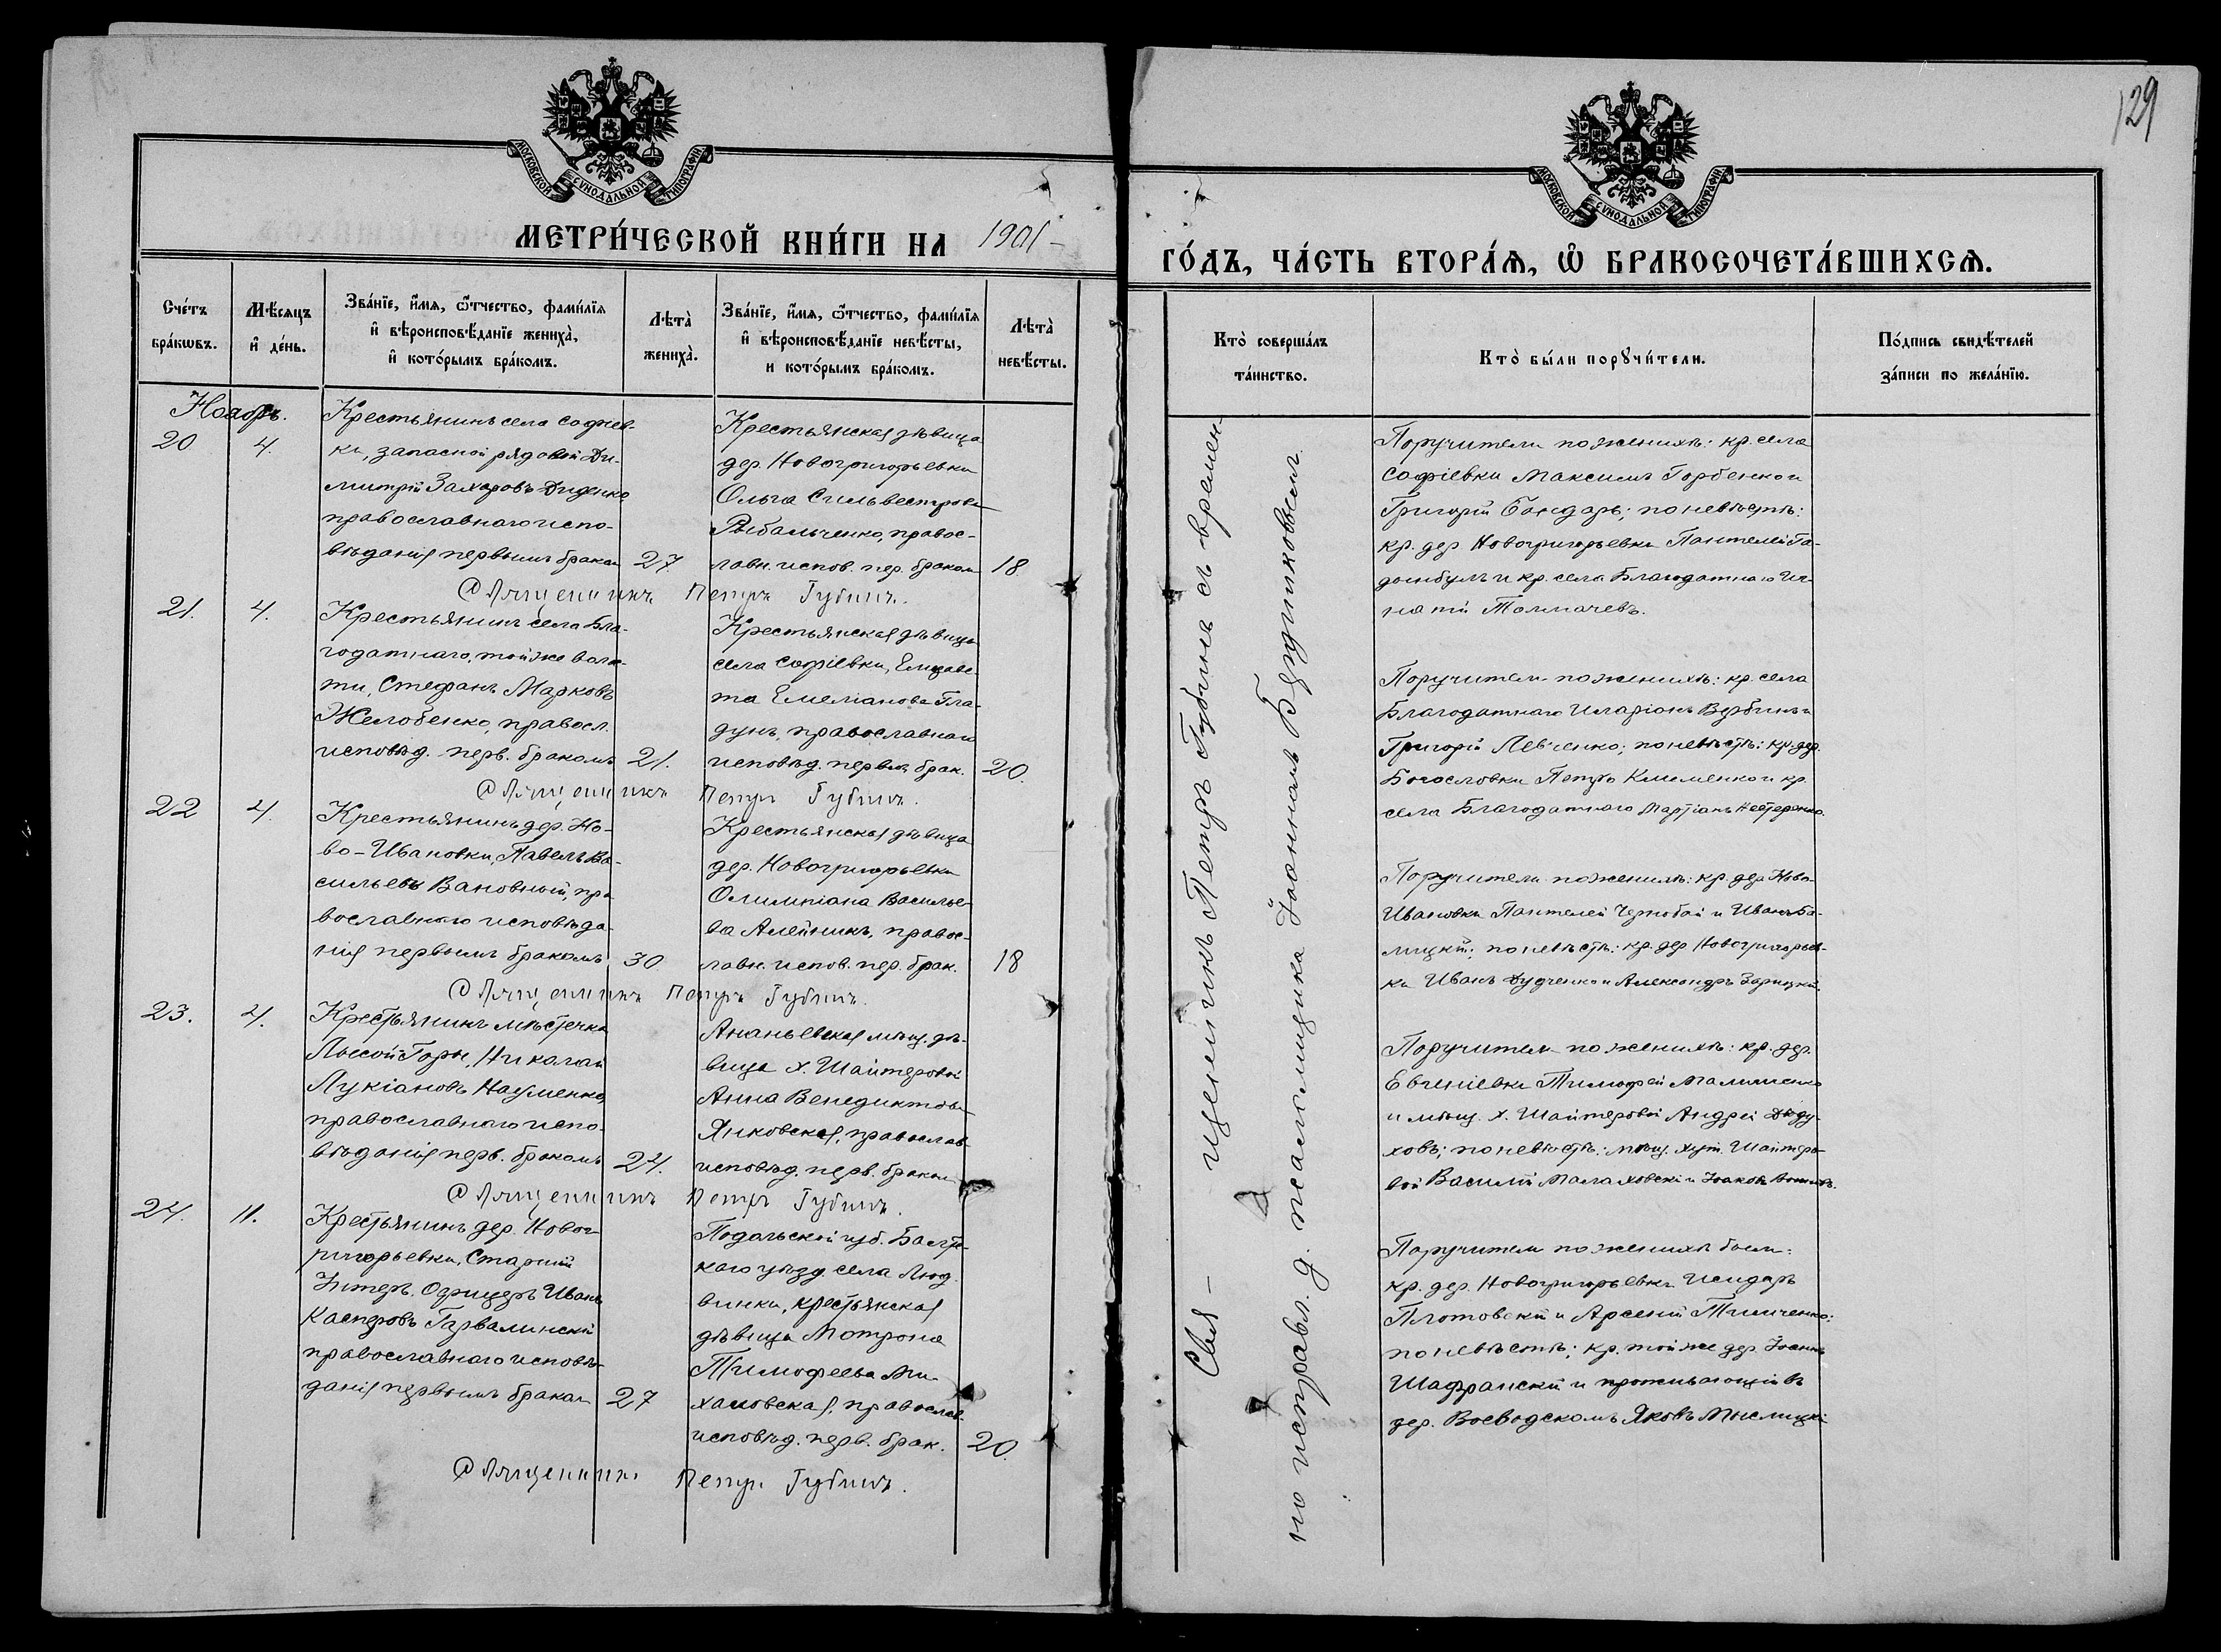 129
МОСКОВСКОЙ СУНОДАЛЬНОЙ ТИПОГРАФІИ
МОСКОВСКОЙ СУНОДАЛЬНОЙ ТИПОГРАФІИ
МЕТРИ́ЧЕСКОЙ КНИ́ГИ НА 1901
ГО́ДЪ, ЧА́СТЬ ВТОРА́Ѧ, Ѽ БРАКОСОЧЕТА́ВШИХСѦ.
Сче́тъ бра́кѡвъ.
Мѣ́сяцъ и де́нь.
Зва́нїе, и́мѧ, ѻ҆́тчество, фами́лїѧ
и҆ вѣроисповѣ́данїе жениха̀,
и҆ кото́рымъ бра́комъ.
Лѣта̀ жениха̀.
Зва́нїе, и́мѧ, ѻ҆́тчество, фами́лїѧ
и҆ вѣроисповѣ́данїе невѣ́сты,
и кото́рымъ бра́комъ.
Лѣта̀ невѣ́сты.
Кто̀ соверша́лъ та́инство.
Кто̀ бы́ли порꙋчи́тели.
По́дпись свидѣ́телей за́писи по жела́нїю.
Ноябрь.
20 4.
Крестьянинъ села Софіев-
ки, запасной рядовой Ди-
митрій Захаровъ Диденко
православнаго испо-
вѣданія первымъ бракомъ 27.
Крестьянская дѣвица
дер. Новогригорьевки
Ольга Сильвестрова
Рыбальченко, правос-
лавн. испов. пер. бракомъ 18
Священникъ Петръ Губинъ.
21. 4.
Крестьянинъ села Бла-
годатнаго, той же воло-
сти, Стефанъ Марковъ
Желобенко, правосл.
исповѣд. перв. бракомъ 21.
Крестьянская дѣвица
села Софіевки, Елизаве-
та Емеліанова Гла-
дунъ, православнаго
исповѣд. первы брак. 20.
Священникъ Петръ Губинъ.
22 4.
Крестьянинъ дер. Но-
во-Ивановки, Павелъ Ва-
сильевъ Вановный, пра-
вославнаго исповѣда-
нія первымъ бракомъ 30
Крестьянская дѣвица
дер. Новогригорьевки
Олимпіана Василье-
ва Алейникъ, правос-
лавн. испов. пер. брак. 18
Священникъ Петръ Губинъ.
23. 4.
Крестьянинъ мѣстечка
Лысой Горы, Николай
Лукіановъ Науменко,
православнаго испо-
вѣданія перв. бракомъ 24.
Ананьевская мѣщ. дѣ-
вица х. Шайтеровой
Анна Венедиктова
Янковская, православ.
исповѣд. перв. бракомъ
Священникъ Петръ Губинъ.
24. 11.
Крестьянинъ дер. Новог-
ригорьевки, Старшій
Унтеръ. Офицеръ Иванъ
Касперовъ Гарвалинскій
православнаго исповѣ-
данія первымъ бракомъ 27
Подольской губ. Балтс-
каго уѣзд. села Люд-
винки, крестьянская
дѣвица Мотрона
Тимофеева Ми-
халовская, православ.
исповѣд. перв. брак. 20.
Священникъ Петръ Губинъ.
Свя-щенникъ Петръ Губинъ съ времен-
но исправл. д. псаломщика Іоанномъ
Поручители по женихѣ: кр. села
Софіевки Максимъ Горбенко и
Григорій Бондарь; по невѣстѣ:
кр. дер Новогригорьевки Пантелей Га-
дзинбулъ и кр. села Благодатнаго Иг-
натій Толмачевъ.
Поручители по женихѣ: кр. села
Благодатнаго Иларіонъ Вербинъ и
Григорій Левченко; по невѣстѣ: кр. дер.
Богословки Петръ Клименко и кр.
села Благодатнаго Мартіанъ Нестеренко.
Поручители по женихѣ: кр. дер Ново-
Ивановки Пантелей Чернобай и Иванъ Ба-
лицкій; по невѣстѣ: кр. дер Новогригорьев-
ки Иванъ Дудченко и Александръ Зарицкій.
Поручители по женихѣ: кр. дер.
Евгеніевки Тимофей Малишенко
и мѣщ. х. Шайтеровой Андрей Дѣду-
ховъ; по невѣстѣ: мѣщ. хут. Шайтеро-
вой Василій Малаховскій и Іоаковъ
Поручители по женихѣ были:
кр. дер. Новогригорьевки Исидоръ
Плотовскій и Арсеній Тимченко:
по невѣстѣ; кр. той же дер. Іоаннъ
Шафранскій и проживающій въ
дер. Воеводскомъ Яковъ Мыслицкій